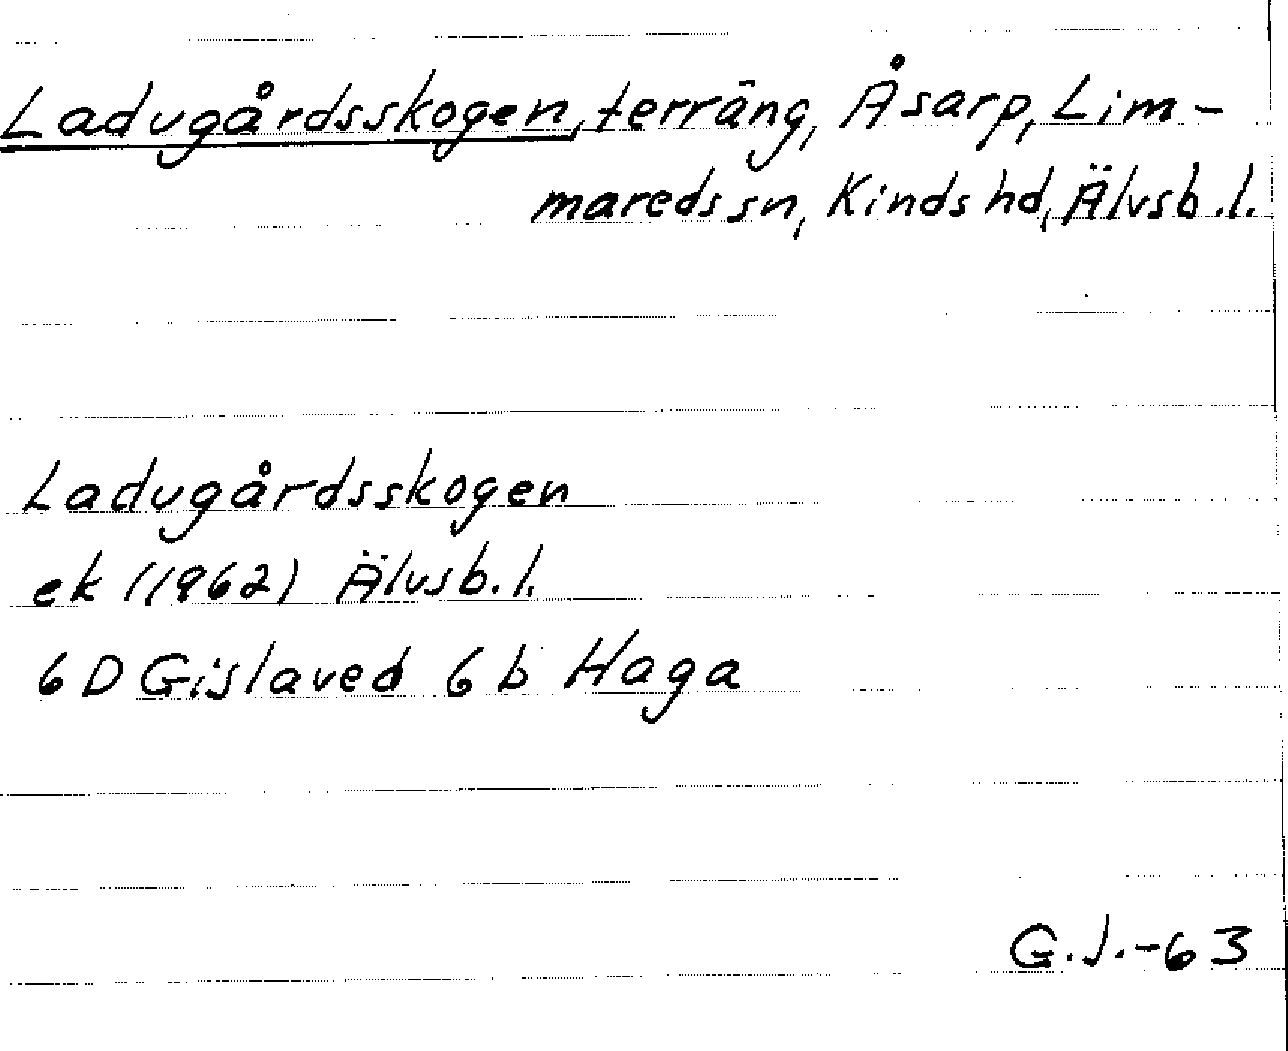 Ladugårdsskogen, terräng, Åsarp, Lim-
mareds sn, Kinds hd, Älvsb.l.
Ladugårdsskogen
ek (1962) Älvsb.l.
6 D Gislaved 6 b Haga
G.J.-63